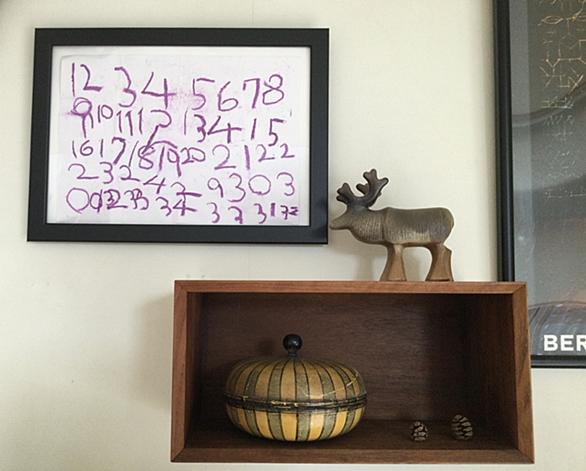 12 3 4 5 6 7 8
9 10 11 12 13 14 15
16 17 18 19 20 21 22
2 3 2 4 2 9 3 0 3
BER